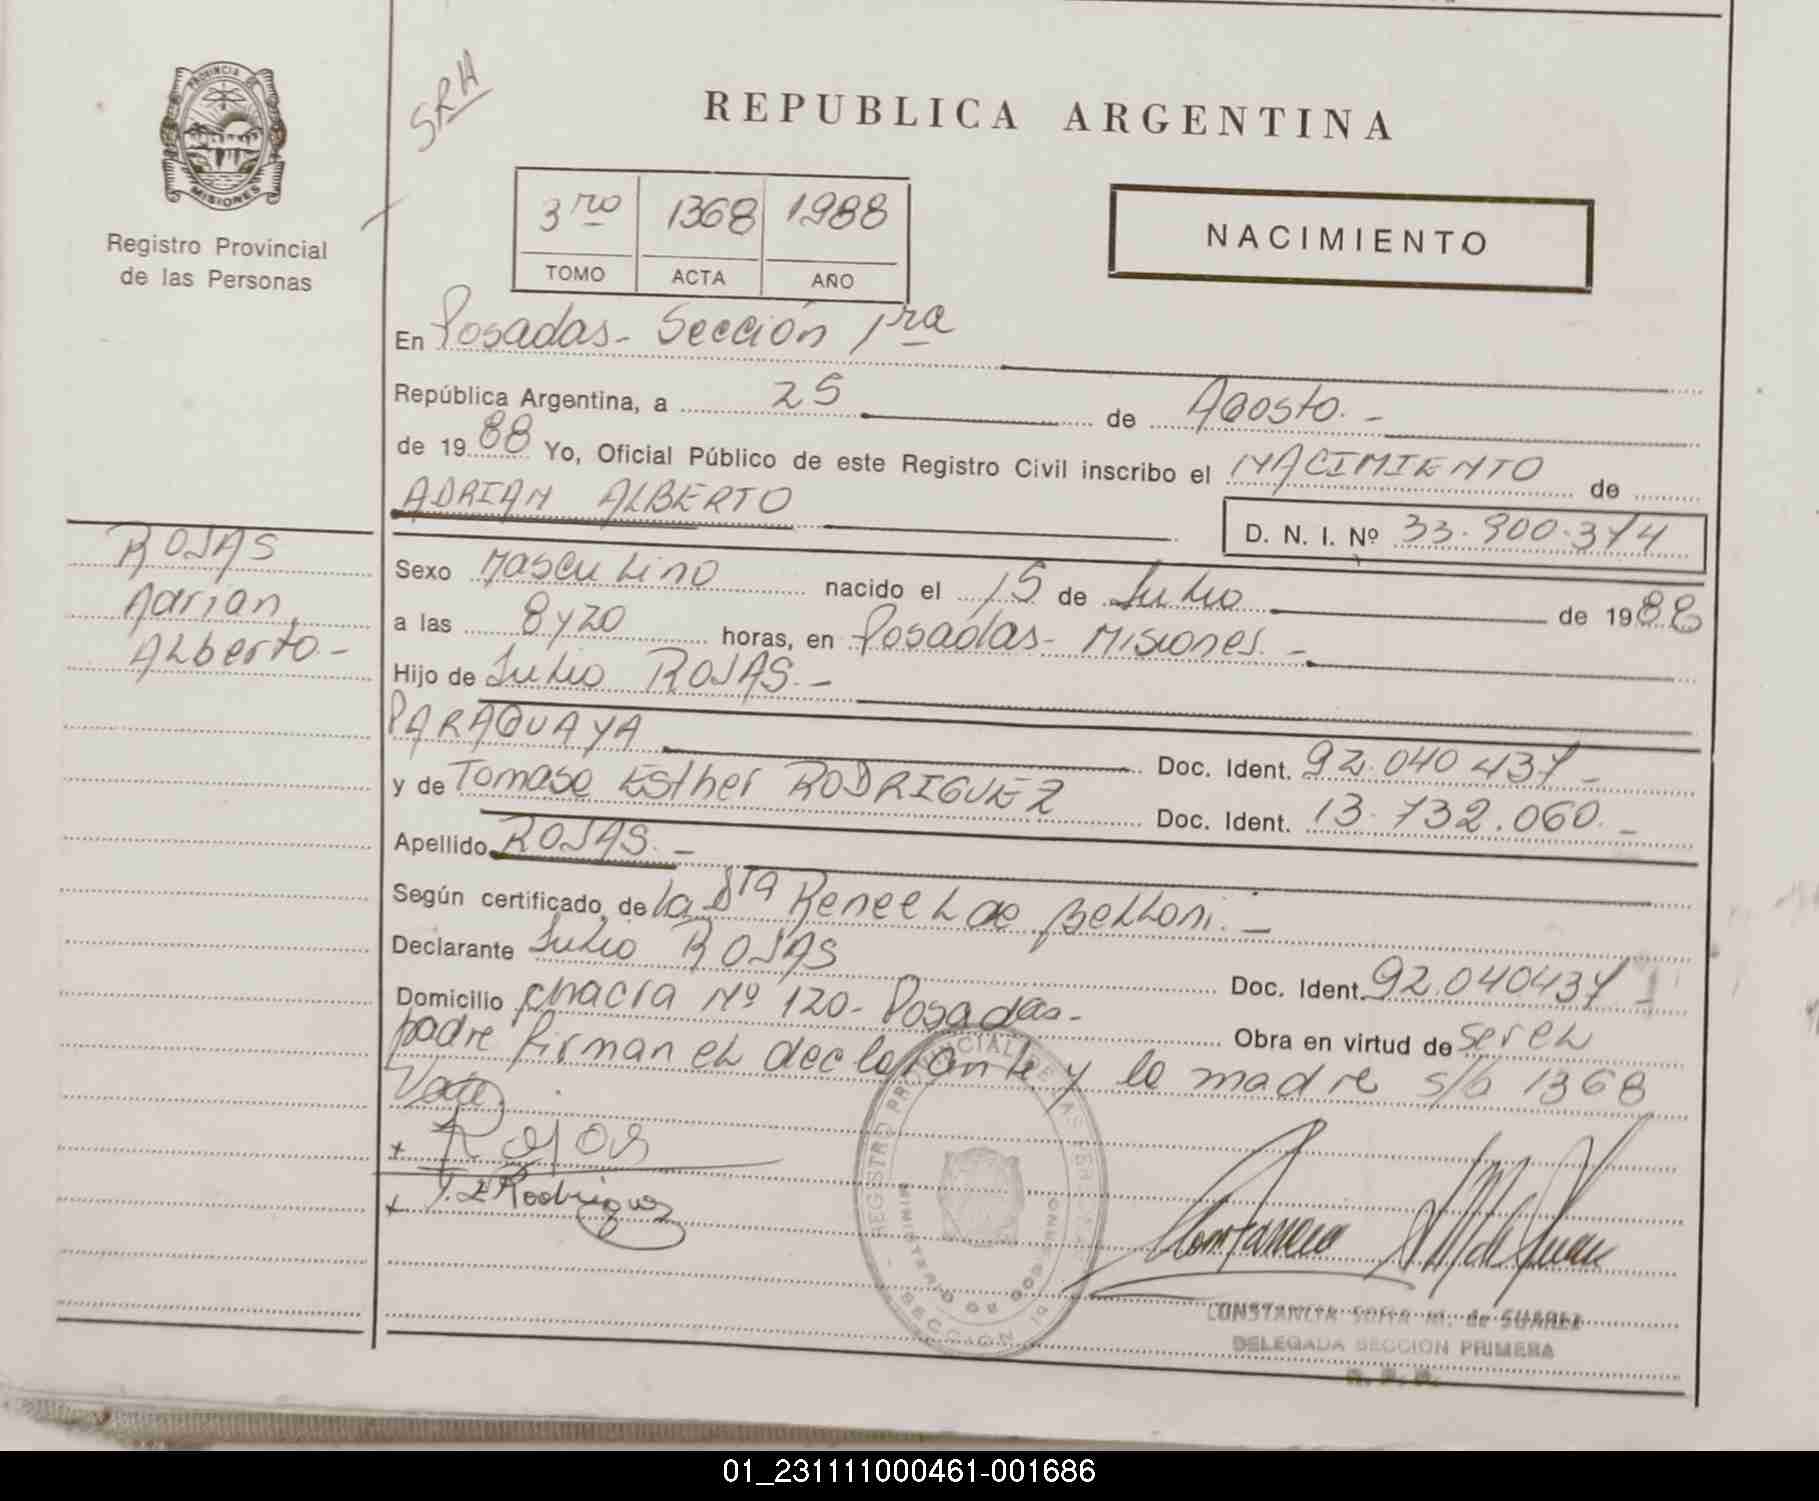 SRH
PROVINCIA DE
MISIONES
Registro Provincial
de las Personas
REPUBLICA ARGENTINA
3ro 1368 1988
TOMO ACTA AÑO
NACIMIENTO
En Posadas - Sección 1ra
República Argentina, a 25 de Agosto. -
de 1988 Yo, Oficial Público de este Registro Civil inscribo el NACIMIENTO de
ADRIAN ALBERTO D. N. I. Nº 33.900.374
ROJAS
Adrian
Alberto -
Sexo Masculino nacido el 15 de Julio de 1988
a las 8 y 20 horas, en Posadas - Misiones. -
Hijo de Julio ROJAS. -
PARAGUAYA Doc. Ident. 92.040.437 -
y de Tomasa Esther RODRIGUEZ Doc. Ident. 13.732.060. -
Apellido ROJAS. -
Según certificado, de la Dta Renee L de Belloni. -
Declarante Julio ROJAS Doc. Ident. 92.040437 -
Domicilio chacra Nº 120 - Posadas - Obra en virtud de ser el
padre firman el declarante y la madre s/a 1368
Vale
+ Rojas
+ T. E Rodriguez
REGISTRO PROVINCIAL DE LAS PERSONAS
MINISTERIO DE GOBIERNO
SECCION 1a
CONSTANCIA SOFIA M. de SUAREZ
DELEGADA SECCION PRIMERA
R. P. P.
01_231111000461-001686